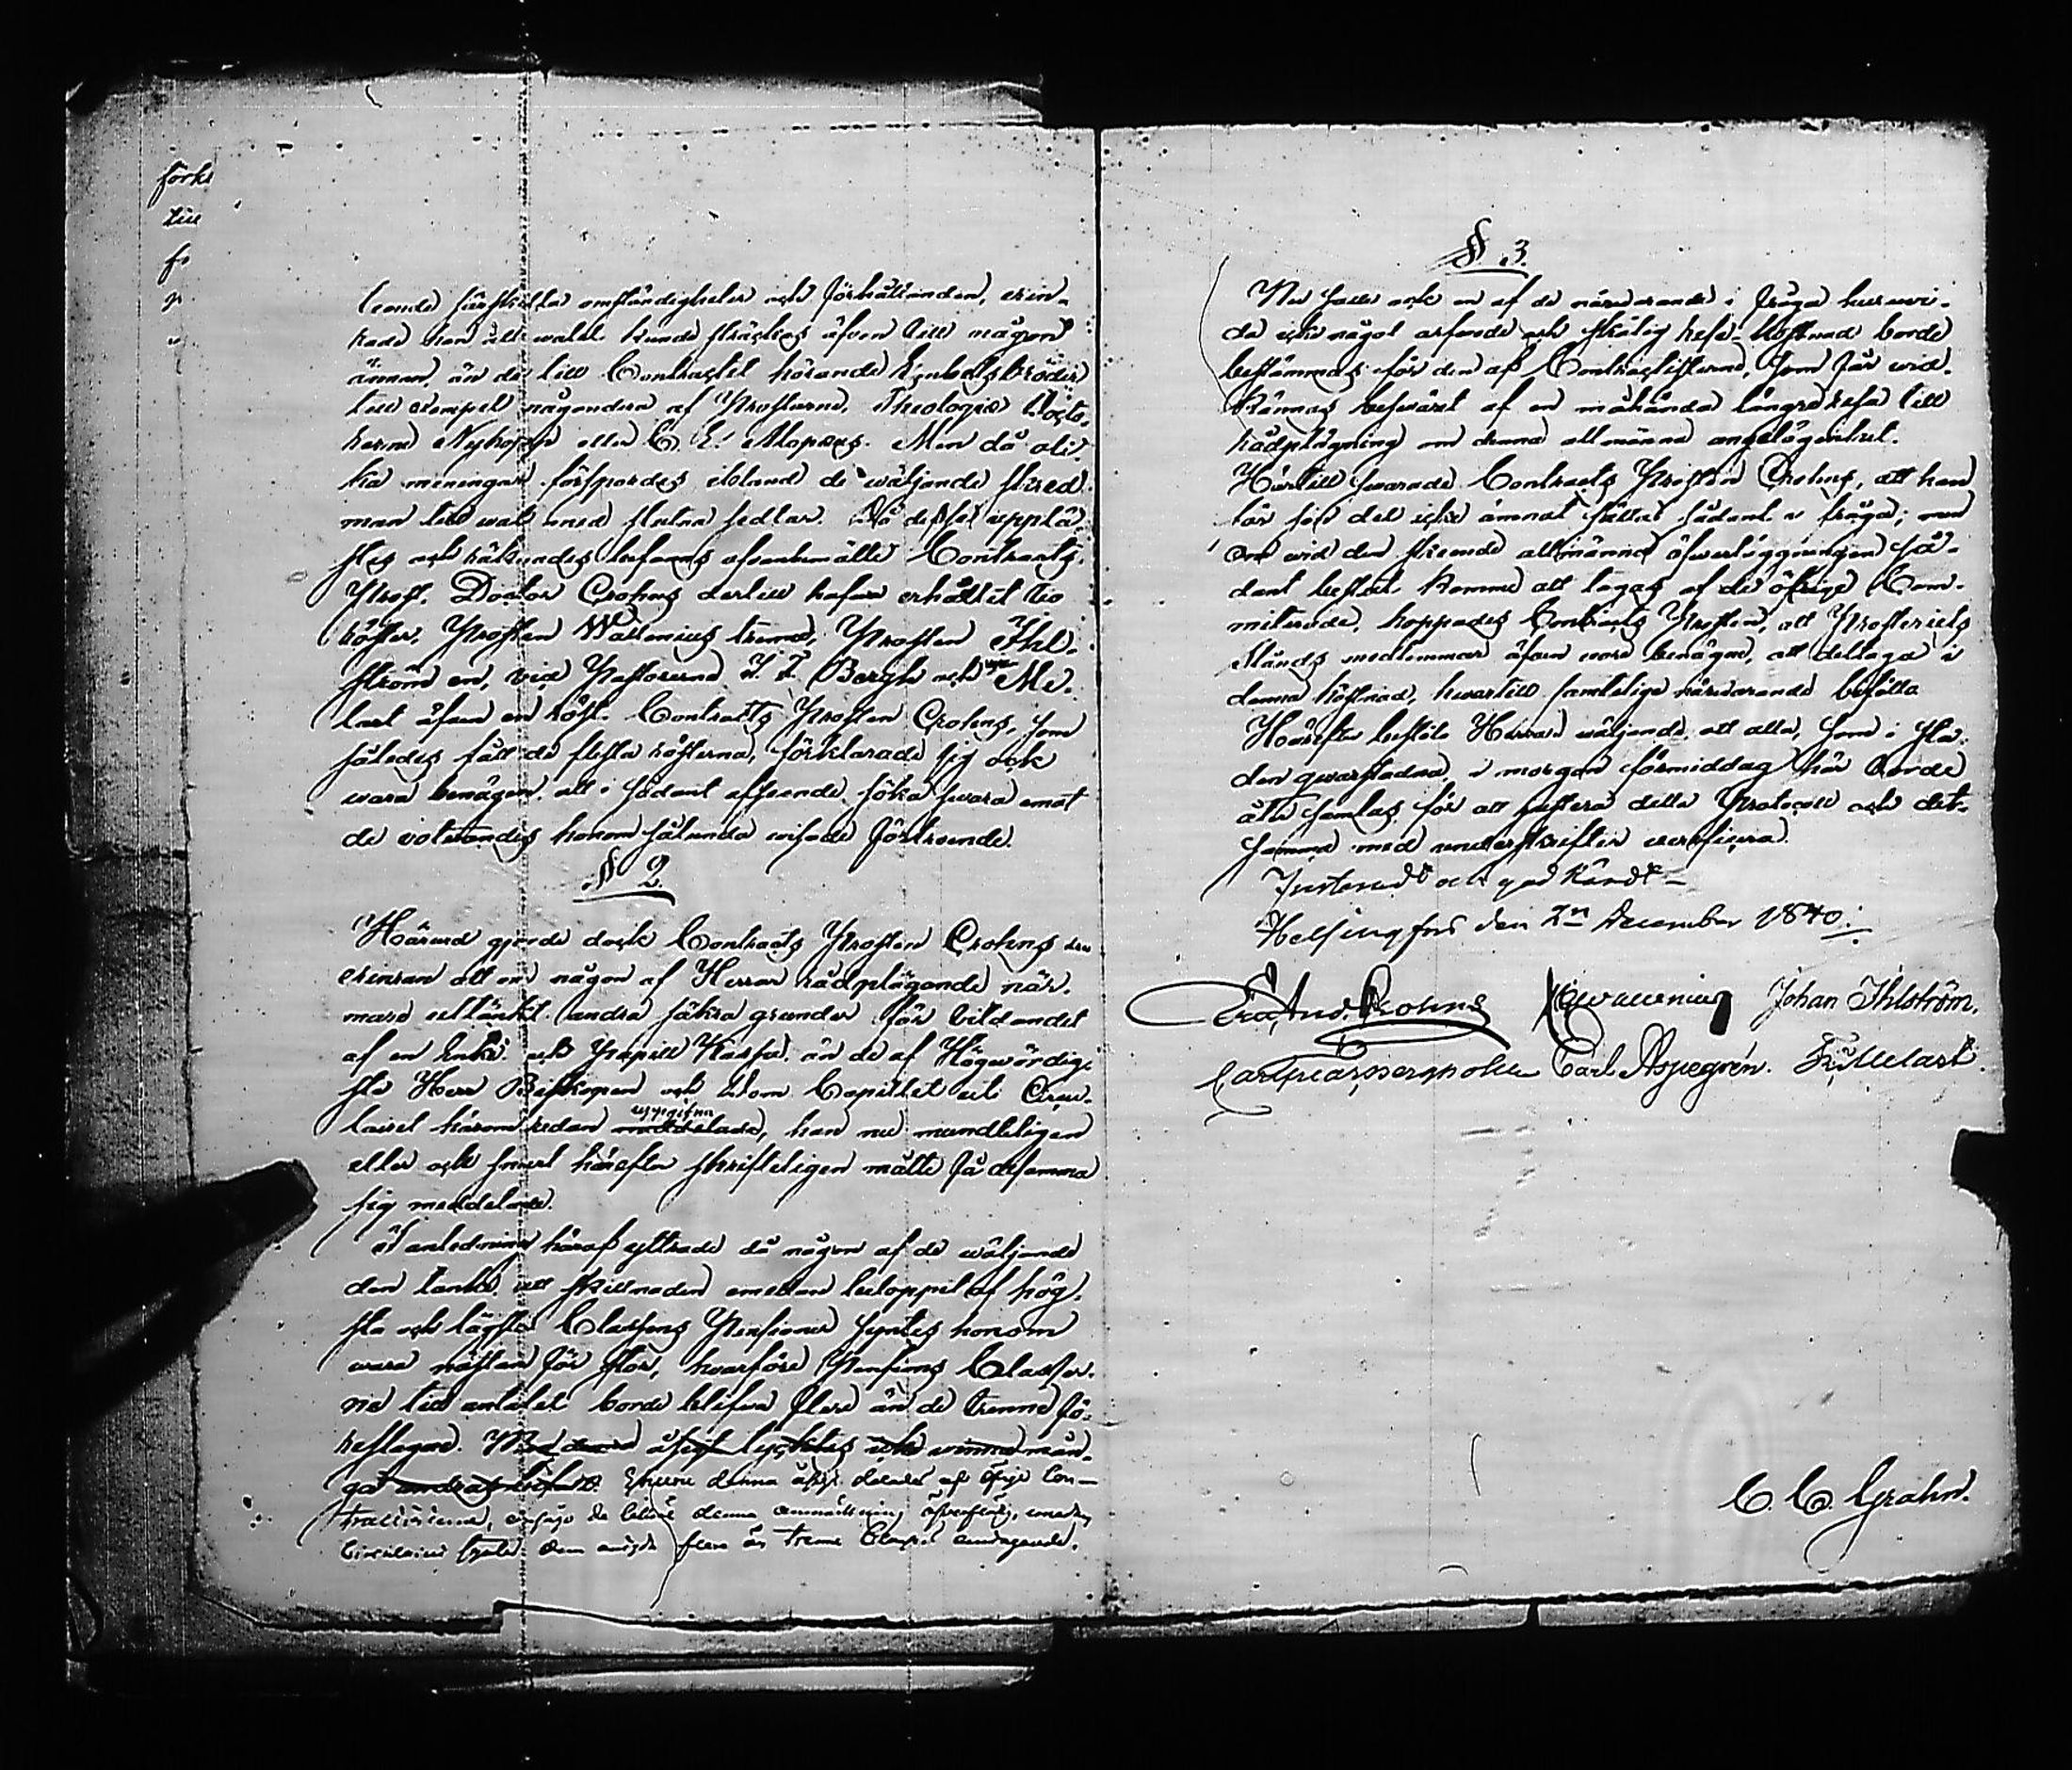 förkl
till
f
teende särskilta omständigheter och förhållanden, erin-
rade han att valet kunde sträckas äfven till någon
annan, än de till Contractet hörande Embetsbröder
till exempel någondera af Prostarne, Theologiæ Docto-
rerne Nykopp eller C. E. Alopæus. Men då oli-
ka meningar förspordes ibland de wäljande skred
man till wal med slutna sedlar. Då dessa upplä-
stes och räknades befans ofvanbemälte Contracts-
Prost, Doctor Crohns dertill hafva erhållit tio
röster, Prosten Wallenius trenne, Prosten Ihl-
ström en, Pastorerne Bergh och Me-
lart äfven en röst. Contracts Prosten Crohns, som
således fått de flesta rösterna, förklarade sig ock
wara benägen att i sådant afseende söka swara emot
de voterandes honom sålunda wisade förtroende.
§ 2.
Härwid gjorde dock Contracts Prosten Crohns en
erinran att om någon af Herrar rådplägande när-
mare uttänkt andra säkra grunder för bildandet
af en Enke- och Pupill Kassa, än de af Högwördig-
ste Herr Biskopen och Dom Capitlet uti Circu-
lairet härom redan uppgifna meddelade, han nu mundteligen
eller ock snart härefter skrifteligen måtte få desamma
sig meddelade.
I anledning häraf yttrade då någon af de wäljande
den tanke, att skillnaden emellan beloppet af hög-
sta och lägsta Classens Pensioner syntes honom
wara nästan för stor, hwarföre Pensions Classer-
ne till antalet borde blifwa flere än de trenne fö-
reslagne. Men denna åsigt lycktes icke winna mån-
ga andras bifall. denna åsigt delades af öfrige Con-
tractisterne, de denna anmärkning öfverflödig, emedan
Circulairet talade om flera än trenne Classer
§ 3.
Nu hade ock en af de närwarande i fråga huruwi-
da icke något arfwode och skälig rese-kostnad borde
bestämmas för den af Contractisterne, som får wid-
kännas beswäret af en måhända längre resa till
rådplägning om denna allmänna angelägenhet.
Härtill swarade Contracts Prosten Crohns, att han
för sin del icke ämnat sätta sådant i fråga; men
om wid den skeende allmänna öfwerläggningen så-
dant beslut komme att tagas af de öfrige Com-
miterade, hoppades Contracts Prosten, att Prosteriets
Stånds medlemmar äfven wore benägne, att deltaga i
denna kostnad, hwartill samtelige närwarande biföllo
Härefter beslöto Herrar wäljande, att alla, som i sta-
den qwarstadna, i morgon förmiddag här borde
åter samlas för att justera detta Protocoll och det-
samma med underskrifter verificera.
Justeradt och godkändt –
Helsingfors den 2n December 1840.
And. Crohns Wallenius Johan Ihlström.
Carl Aspegrén. Fr. Melart.
C. C. Grahn.